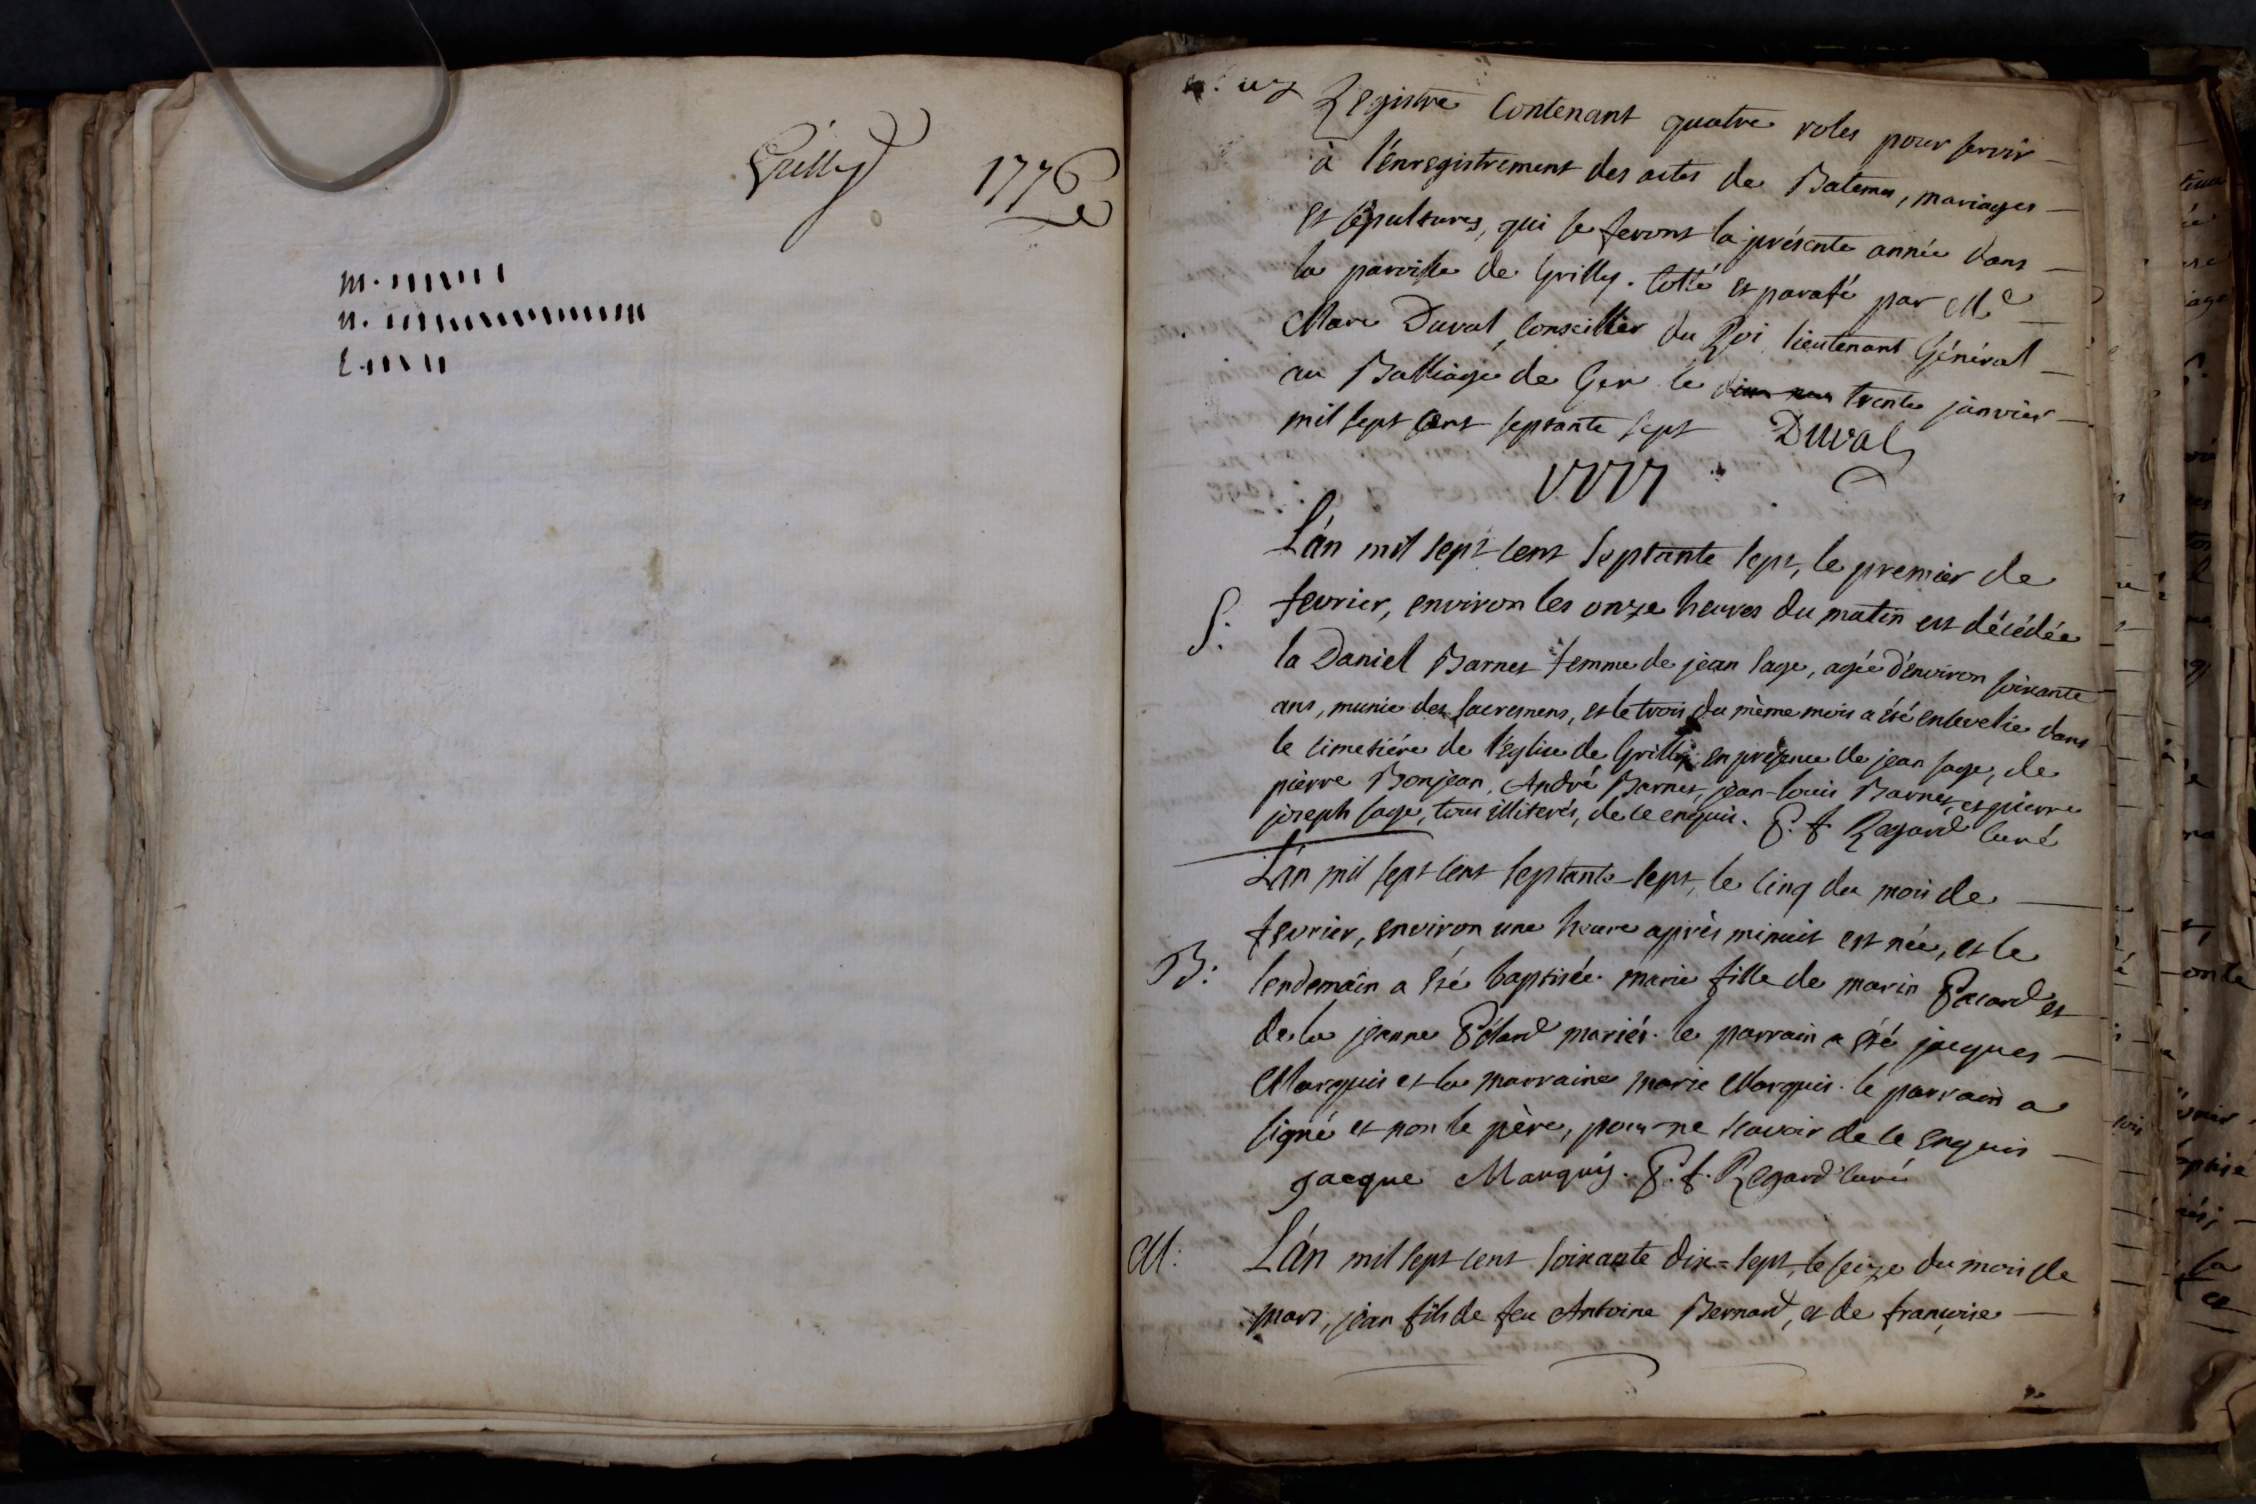 Grilly 1776
m. ıııııı
n. ııııııııııııııı
S. ıııııı
Registre Contenant quatre roles pour servir
à l'énregistrement des actes de Batemes, mariages
et sépultures, qui se feront la présente année dans
la paroisse de Grilly. Cotté et parafé par Me
Marc Duval, Conseiller du Roi lieutenant Général
au Balliage de Gex le trente janvier
mil sept cent septante sept Duval
1777
L'án mil sept cent Septante sept, le premier de
S: fevrier, environ les onze heures du matin est décédée
la Daniel Barnes femme de jean sage, agée d'environ soixante
ans, munie des sacremens, et le trois du même mois a été ensevelie dans
le cimetiére de l'église de Grilly, en présence de jean sage, de
pierre Bonjean, André Barnes, jean-louis Barnes, et pierre
joseph sage, tous illiterés, de ce enquis. P. f Regard Curé
L'án mil sept cent septante-sept, le cinq du mois de
fevrier, environ une heure après minuit est née, et le
B: lendemain a été baptisée marie fille de marin Pacard et
de la jeanne Pélard mariés. le parrain a été jacques
Marquis et la marraine marie Marquis. le parrain a
signé et non le père, pour ne scavoir de ce enquis
Jacque Marquis. P. f. Regard curé
M: L'án mil sept cent soixante dix=sept, le seize du mois de
mars, jean fils de feu Antoine Bernard, et de françoise